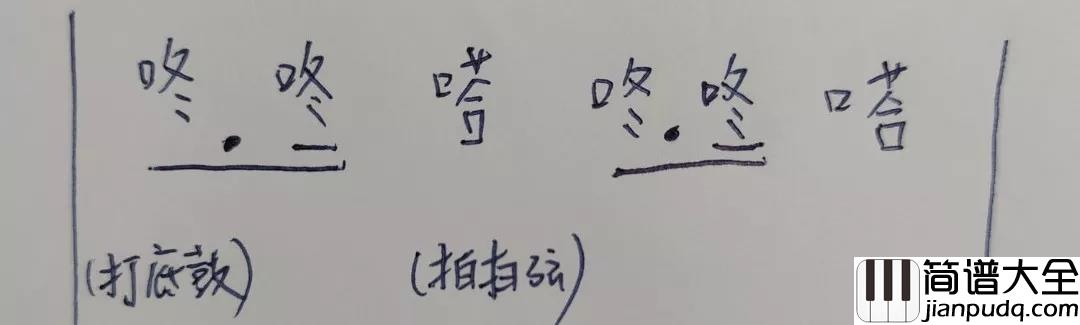 咚. 咚 嗒 咚. 咚 嗒
(打底鼓) (拍拍弦)
简谱大全
jianpudq.com